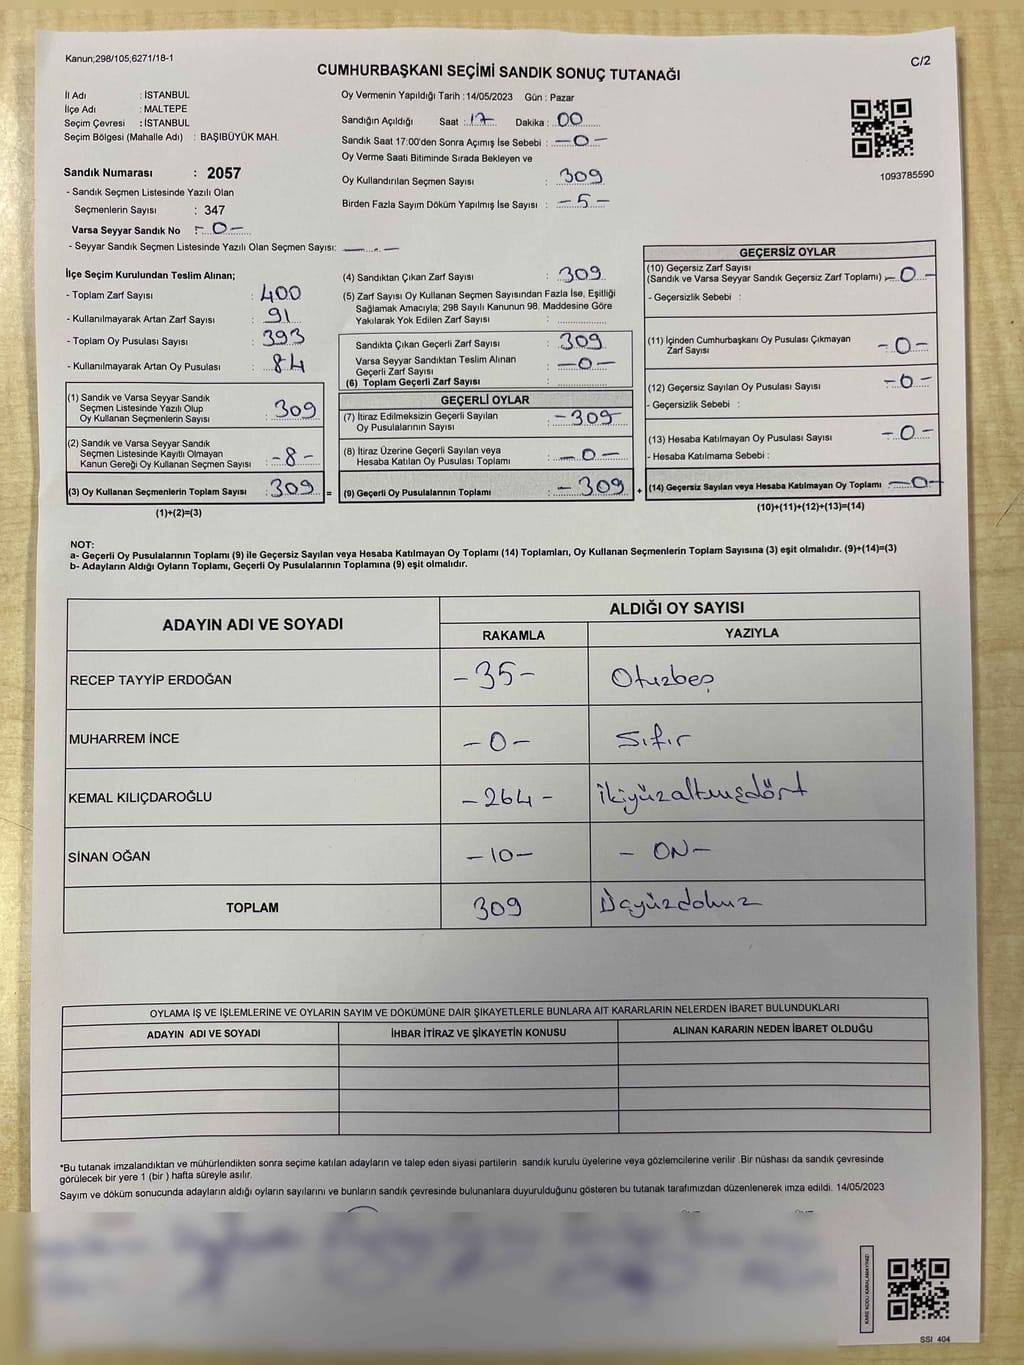 Kanun;298/105;6271/18-1
C/2
CUMHURBAŞKANI SEÇİMİ SANDIK SONUÇ TUTANAĞI
İl Adı : İSTANBUL
İlçe Adı : MALTEPE
Seçim Çevresi : İSTANBUL
Seçim Bölgesi (Mahalle Adı) : BAŞIBÜYÜK MAH.
Sandık Numarası : 2057
- Sandık Seçmen Listesinde Yazılı Olan
Seçmenlerin Sayısı : 347
Varsa Seyyar Sandık No : - 0 -
- Seyyar Sandık Seçmen Listesinde Yazılı Olan Seçmen Sayısı:
Oy Vermenin Yapıldığı Tarih : 14/05/2023 Gün : Pazar
Sandığın Açıldığı Saat : 17 Dakika : 00
Sandık Saat 17:00'den Sonra Açımış İse Sebebi : - 0 -
Oy Verme Saati Bitiminde Sırada Bekleyen ve
Oy Kullandırılan Seçmen Sayısı : 309
Birden Fazla Sayım Döküm Yapılmış İse Sayısı : - 5 -
1093785590
İlçe Seçim Kurulundan Teslim Alınan;
- Toplam Zarf Sayısı : 400
- Kullanılmayarak Artan Zarf Sayısı : 91
- Toplam Oy Pusulası Sayısı : 393
- Kullanılmayarak Artan Oy Pusulası : 84
(1) Sandık ve Varsa Seyyar Sandık
Seçmen Listesinde Yazılı Olup
Oy Kullanan Seçmenlerin Sayısı : 309
(2) Sandık ve Varsa Seyyar Sandık
Seçmen Listesinde Kayıtlı Olmayan
Kanun Gereği Oy Kullanan Seçmen Sayısı : - 8 -
(3) Oy Kullanan Seçmenlerin Toplam Sayısı : 309
(1)+(2)=(3)
(4) Sandıktan Çıkan Zarf Sayısı : 309
(5) Zarf Sayısı Oy Kullanan Seçmen Sayısından Fazla İse, Eşitliği
Sağlamak Amacıyla; 298 Sayılı Kanunun 98. Maddesine Göre
Yakılarak Yok Edilen Zarf Sayısı :
Sandıkta Çıkan Geçerli Zarf Sayısı : 309
Varsa Seyyar Sandıktan Teslim Alınan
Geçerli Zarf Sayısı : - 0 -
(6) Toplam Geçerli Zarf Sayısı :
GEÇERLİ OYLAR
(7) İtiraz Edilmeksizin Geçerli Sayılan
Oy Pusulalarının Sayısı : - 309
(8) İtiraz Üzerine Geçerli Sayılan veya
Hesaba Katılan Oy Pusulası Toplamı : - 0 -
= (9) Geçerli Oy Pusulalarının Toplamı - 309
GEÇERSİZ OYLAR
(10) Geçersiz Zarf Sayısı
(Sandık ve Varsa Seyyar Sandık Geçersiz Zarf Toplamı) - 0 -
- Geçersizlik Sebebi :
(11) İçinden Cumhurbaşkanı Oy Pusulası Çıkmayan
Zarf Sayısı - 0 -
(12) Geçersiz Sayılan Oy Pusulası Sayısı - 0 -
- Geçersizlik Sebebi :
(13) Hesaba Katılmayan Oy Pusulası Sayısı - 0 -
- Hesaba Katılmama Sebebi :
+ (14) Geçersiz Sayılan veya Hesaba Katılmayan Oy Toplamı - 0 -
(10)+(11)+(12)+(13)=(14)
NOT:
a- Geçerli Oy Pusulalarının Toplamı (9) ile Geçersiz Sayılan veya Hesaba Katılmayan Oy Toplamı (14) Toplamları, Oy Kullanan Seçmenlerin Toplam Sayısına (3) eşit olmalıdır. (9)+(14)=(3)
b- Adayların Aldığı Oyların Toplamı, Geçerli Oy Pusulalarının Toplamına (9) eşit olmalıdır.
ADAYIN ADI VE SOYADI ALDIĞI OY SAYISI
RAKAMLA YAZIYLA
RECEP TAYYİP ERDOĞAN - 35 - Otuzbeş
MUHARREM İNCE - 0 - Sıfır
KEMAL KILIÇDAROĞLU - 264 - ikiyüzaltmışdört
SİNAN OĞAN - 10 - - ON -
TOPLAM 309 Üçyüzdokuz
OYLAMA İŞ VE İŞLEMLERİNE VE OYLARIN SAYIM VE DÖKÜMÜNE DAİR ŞİKAYETLERLE BUNLARA AİT KARARLARIN NELERDEN İBARET BULUNDUKLARI
ADAYIN ADI VE SOYADI İHBAR İTİRAZ VE ŞİKAYETİN KONUSU ALINAN KARARIN NEDEN İBARET OLDUĞU
*Bu tutanak imzalandıktan ve mühürlendikten sonra seçime katılan adayların ve talep eden siyasi partilerin sandık kurulu üyelerine veya gözlemcilerine verilir .Bir nüshası da sandık çevresinde
görülecek bir yere 1 (bir ) hafta süreyle asılır.
Sayım ve döküm sonucunda adayların aldığı oyların sayılarını ve bunların sandık çevresinde bulunanlara duyurulduğunu gösteren bu tutanak tarafımızdan düzenlenerek imza edildi. 14/05/2023
KARE KODU KARALAMAYINIZ!
SSI 404